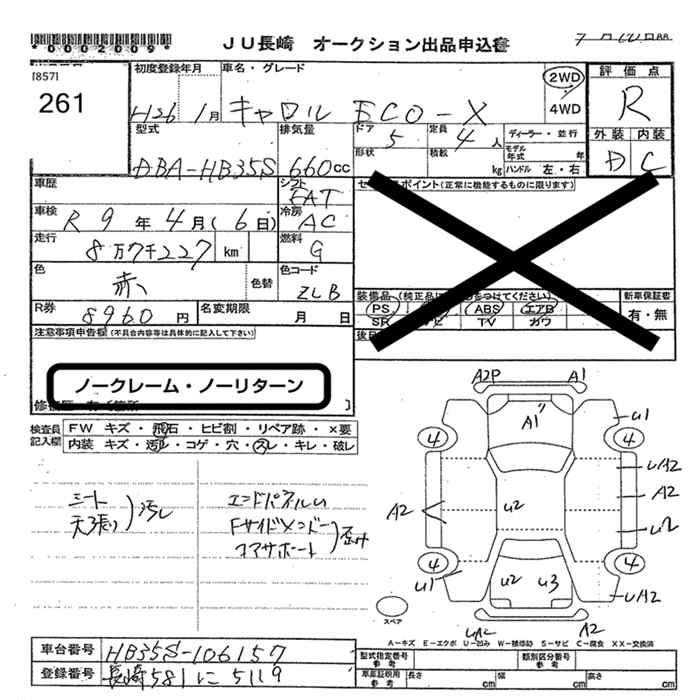 *0002009*
JU長崎 オークション出品申込書
[857]
261
初度登録年月
H26 1月
車名・グレード
キャロル ECO-X
2WD
4WD
評価点
R
外装 内装
D C
型式
DBA-HB35S
排気量
660cc
ドア
5
定員
4人
ディーラー・並行
形状
積載
kg
モデル年式
年
ハンドル 左・右
車歴
シフト
FAT
セールスポイント(正常に機能するものに限ります)
車検
R 9年 4月(6日)
冷房
AC
走行
8万7千227 km
燃料
G
色
赤
色替
色コード
ZLB
装備品
PS
ABS
エアB
SR
ナビ
TV
カワ
新車保証書
有・無
R券
8960円
名変期限
月 日
注意事項申告欄(不具合内容等は具体的に記入して下さい)
ノークレーム・ノーリターン
検査員記入欄
FW キズ・飛石・ヒビ割・リペア跡・X要
内装 キズ・汚れ・コゲ・穴・スレ・キレ・破レ
シート
天張り
汚レ
エンドパネルU
Fサイドメンバー
コアサポート
A2P A1
A1
U1
4 4
UA2
A2
A2
U2
U2
4 4
U1
U2 U3
UA2
スペア
UA2 A2
A-キズ E-エクボ U-凹み W-補修跡 S-サビ C-腐食 XX-交換済
車台番号
HB35S-106157
登録番号
長崎581に5119
型式指定番号
参考
類別区分番号
参考
車庫証明用
参考
長さ
cm
幅
cm
高さ
cm